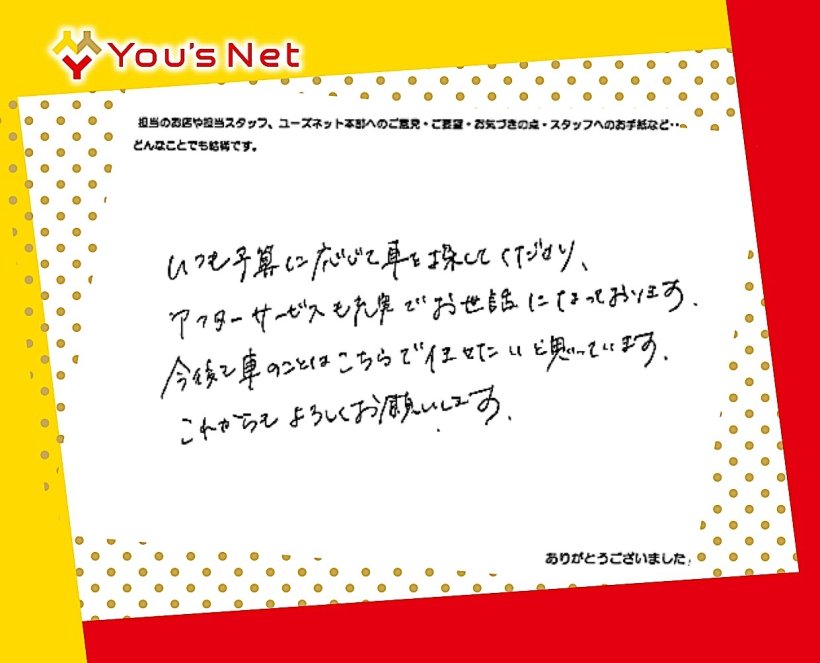 You's Net
担当のお店や担当スタッフ、ユーズネット本部へのご意見・ご要望・お気づきの点・スタッフへのお手紙など・・
どんなことでも結構です。
いつも予算に応じて車を探してくださり、
アフターサービスも充実でお世話になっております。
今後も車のことはこちらで任せたいと思っています。
これからもよろしくお願いします。
ありがとうございました